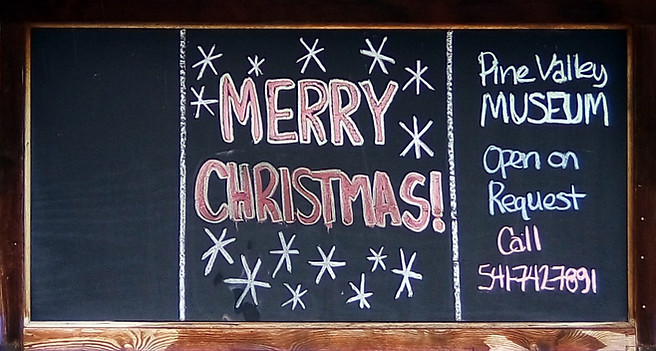 MERRY
CHRISTMAS!
Pine Valley
MUSEUM
Open on
Request
Call
541-742-7891